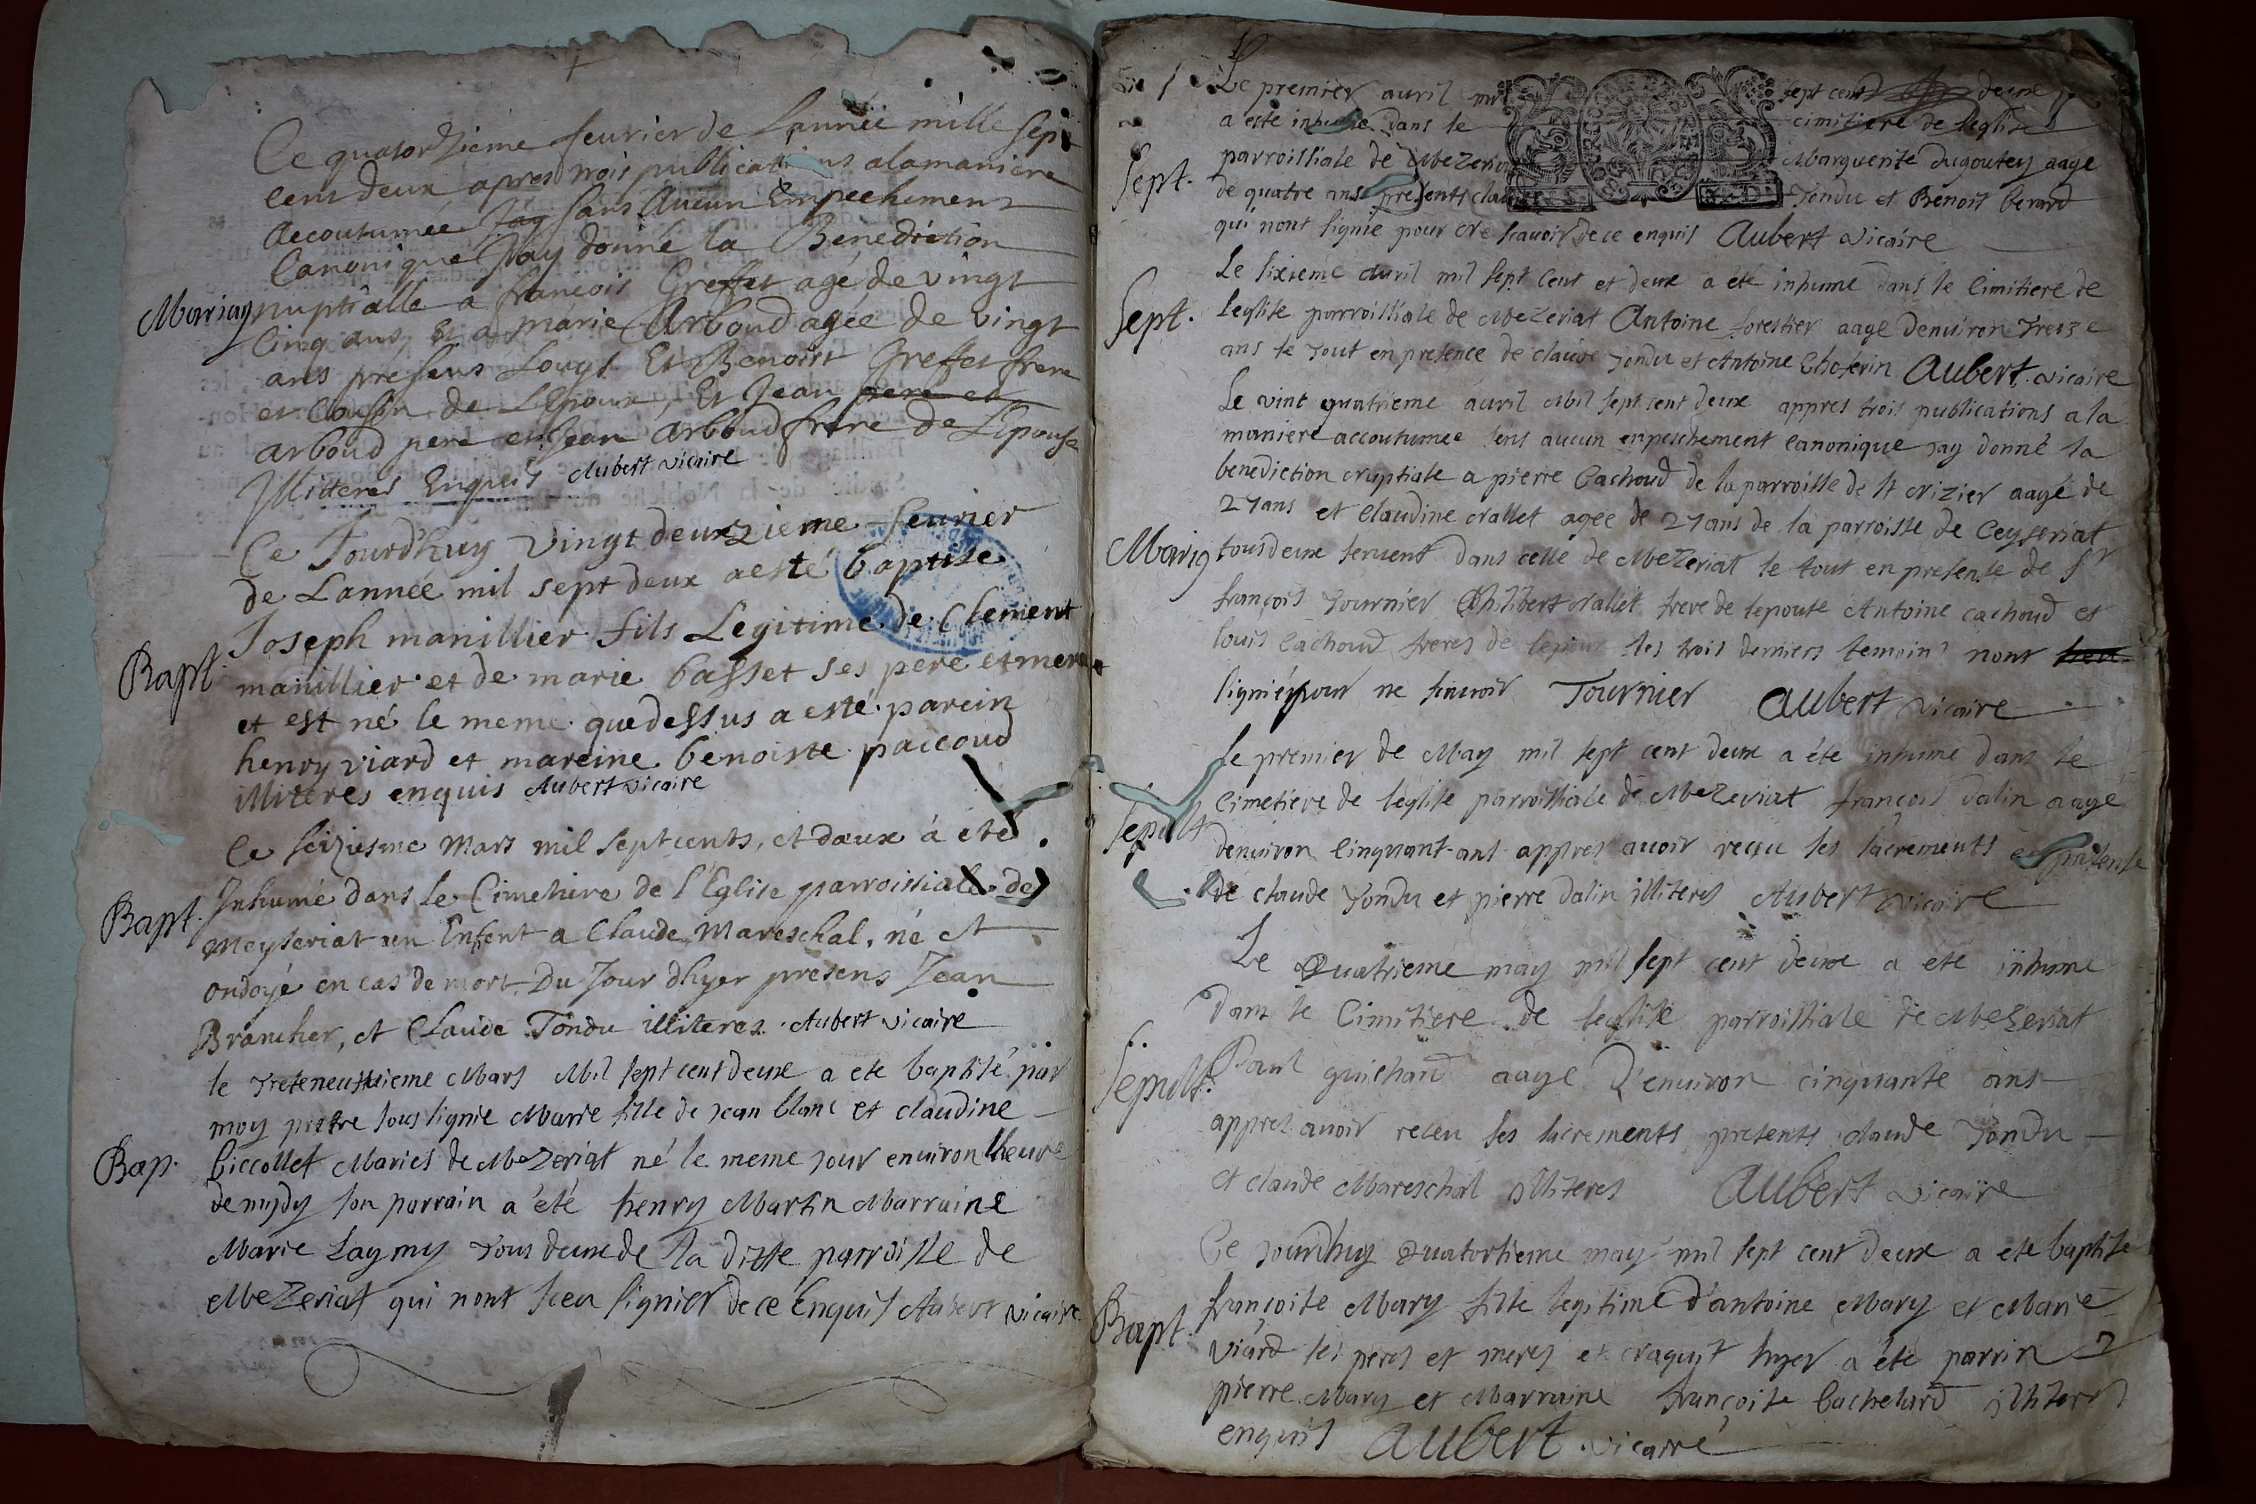 Ce quatorzieme feurier de Lannée mille sept
cent deux apres trois publications alamaniere
accoutumée sans Aucun Empechement
Canonique Jay donné la Benediction
Mariag nuptialle a francois Greffet agé de vingt
Cinq ans, Et a marie Arboud agée de vingt
ans presens Louys Et Benoist Greffet frere
et Cousin de L'Epoux, Et Jean pere et
arboud pere et Jean arboud frere de L'epouse
Illitteres Enquis Aubert vicaire
Ce Jourd'huy vingt deuxzieme feurier
de Lannée mil sept deux aesté baptisé
Joseph manillier fils Légitime de Clement
Bapt. manillier et de marie basset ses pere et mere
et est né le meme que dessus a esté parein
henry viard et mareine benoiste paccoud
illiteres enquis Aubert vicaire
Ce seiziesme Mars mil sept cents, et deux à été
Inhumé dans Le Cimetiere de l'Eglise parroissiale de
Bapt. Meyseriat un Enfent a Claude Mareschal, né et
ondoyé en cas de mort Du Jour dhyer presens Jean
Brancher, et Claude Tondu illiteres Aubert vicaire
le Mars Mil sept cent deux a ete baptisé par
moy pretre sous signie Marie fille de Jean blanc et claudine
Bap. biccollet Mariés de Mezeriat né le meme jour environ lheure
de mydy son parrain a été henry Martin Marraine
Marie Laymy tous deux de la ditte parroisse de
Mezeriat qui nont sceu signier de ce Enquis Aubert vicaire
Le premier auril mil sept cent deux
a esté inhumé dans le cimitiere de leglise
Sept. parroissiale de Mezeriat Marguerite dugoutey aage
de quatre ans presents claude Tondu et Benoit berard
qui nont signie pour ne scauoir de ce enquis Aubert vicaire
Le sixieme auril mil sept cent et deux a été inhumé dans le Cimitiere de
Sept. leglise parroissiale de Mezeriat Antoine forestier aage denuiron treize
ans le tout en presence de claude Tondu et Antoine Aubert vicaire
Le vint quatrieme auril Mil sept cent deux appres trois publications a la
maniere accoutumee sens aucun enpeschement canonique jay donné la
benediction nuptiale a pierre Cachoud de la parroisse de St nizier aagé de
27 ans et Claudine nallet agee de 27 ans de la parroisse de Ceyseriat
Mariag tous deux seruent dans celle de Mezeriat le tout en presense de Sr
françois Tournier Philibert nallet frere de lepouse Antoine cachoud et
louis cachoud freres de lepoux les trois derniers temoins nont
signié pour ne scauoir Tournier Aubert vicaire
Le premier de May mil sept cent deux a éte inhumé dans le
Sepult Cimetiere de léglise parroissiale de Mezeriat françois dalin aage
denuiron Cinquant ans appres auoir receu les sacrements en presense
de claude Tondu et pierre dalin illiteres Aubert vicaire
Le Quatrieme may mil sept cent deux a été inhume
dans le Cimitiere de leglise parroissiale de Mezeriat
Sepult. Paul guichard aage D'enuiron cinquante ans
appres auoir receu ses sacrements presents claude Tondu
et claude Mareschal Illiteres Aubert vicaire
Ce jourdhuy Quatorsieme may mil sept cent deux a eté baptisé
Bapt. françoise Mary fille legitime d'antoine Mary et Marie
viard ses peres et meres et naquit hyer a été parrin
pierre Mary et Marraine françoise bachelard Illiteres
enquis Aubert vicaire